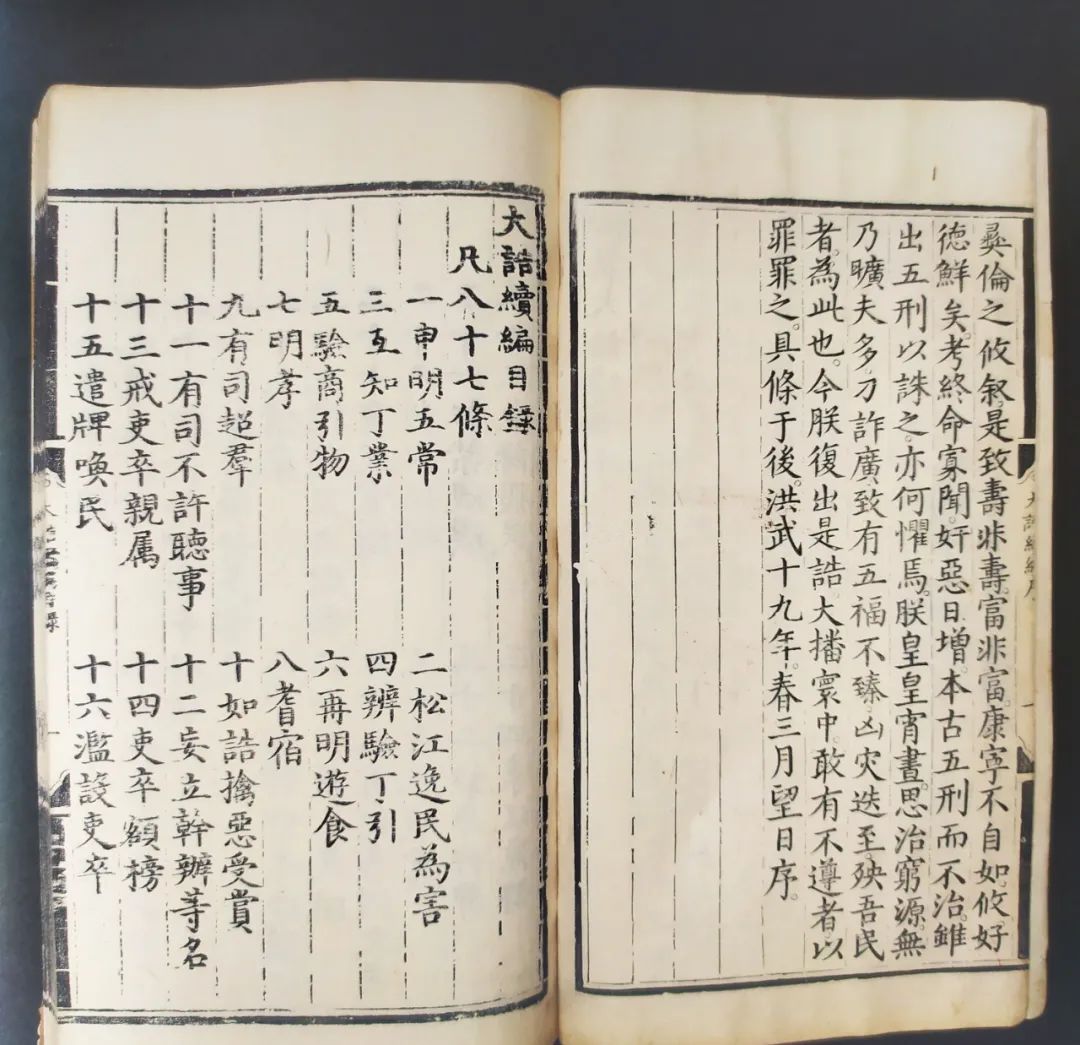 彝倫之攸敘是致壽非壽富非富康寧不自如攸好
德鮮矣考終命寡聞奸惡日增本古五刑而不治雖
出五刑以誅之亦何懼焉朕皇皇宵晝思治窮源無
乃曠夫多刁詐廣致有五福不臻凶灾迭至殃吾民
者為此也今朕復出是誥大播寰中敢有不遵者以
罪罪之具條于後洪武十九年春三月望日序
大誥續編目錄
凡八十七條
一申明五常 二松江逸民為害
三互知丁業 四辨驗丁引
五驗商引物 六再明遊食
七明孝 八耆宿
九有司超羣 十如誥擒惡受賞
十一有司不許聽事 十二妄立幹辦等名
十三戒吏卒親属 十四吏卒額榜
十五遣牌喚民 十六濫設吏卒